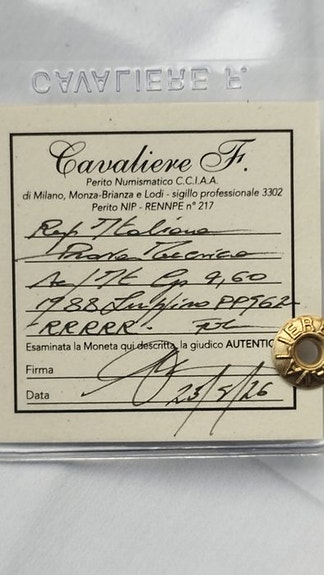 CAVALIERE F.
Cavaliere F.
Perito Numismatico C.C.I.A.A.
di Milano, Monza-Brianza e Lodi - sigillo professionale 3302
Perito NIP - RENNPE n° 217
Rep Italiana
Prova Tecnica
Ac/It Gr 9,60
1988 PP962
RRRRR.
Esaminata la Moneta qui descritta, la giudico AUTENTIC
Firma
Data 25/5/26
LIERE